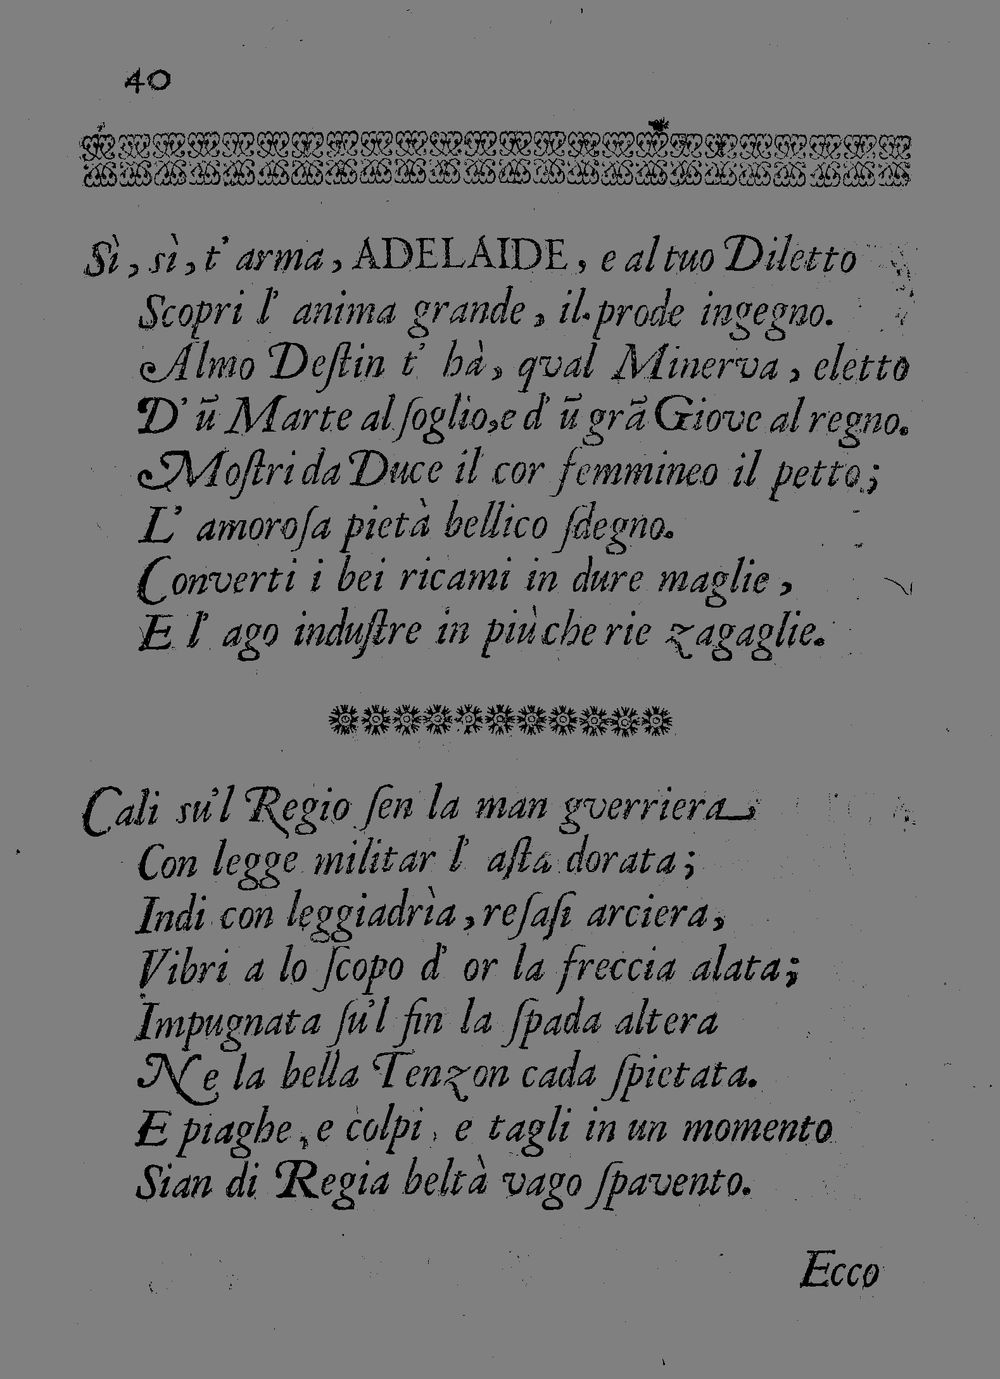 40
Sì, sì, t' arma, ADELAIDE, e al tuo Diletto
Scopri l' anima grande, il prode ingegno.
Almo Deſtin t' hà, qval Minerva, eletto
D' ũ Marte al ſoglio, e d' ũ grã Giove al regno.
Moſtri da Duce il cor femmineo il petto;
L' amoroſa pietà bellico ſdegno.
Converti i bei ricami in dure maglie,
E l' ago induſtre in più che rie zagaglie.
Cali su'l Regio ſen la man gverriera
Con legge militar l' aſta dorata;
Indi con leggiadrìa, reſaſi arciera,
Vibri a lo ſcopo d' or la freccia alata;
Impugnata ſu'l fin la ſpada altera
Ne la bella Tenzon cada ſpietata.
E piaghe, e colpi, e tagli in un momento
Sian di Regia beltà vago ſpavento.
Ecco